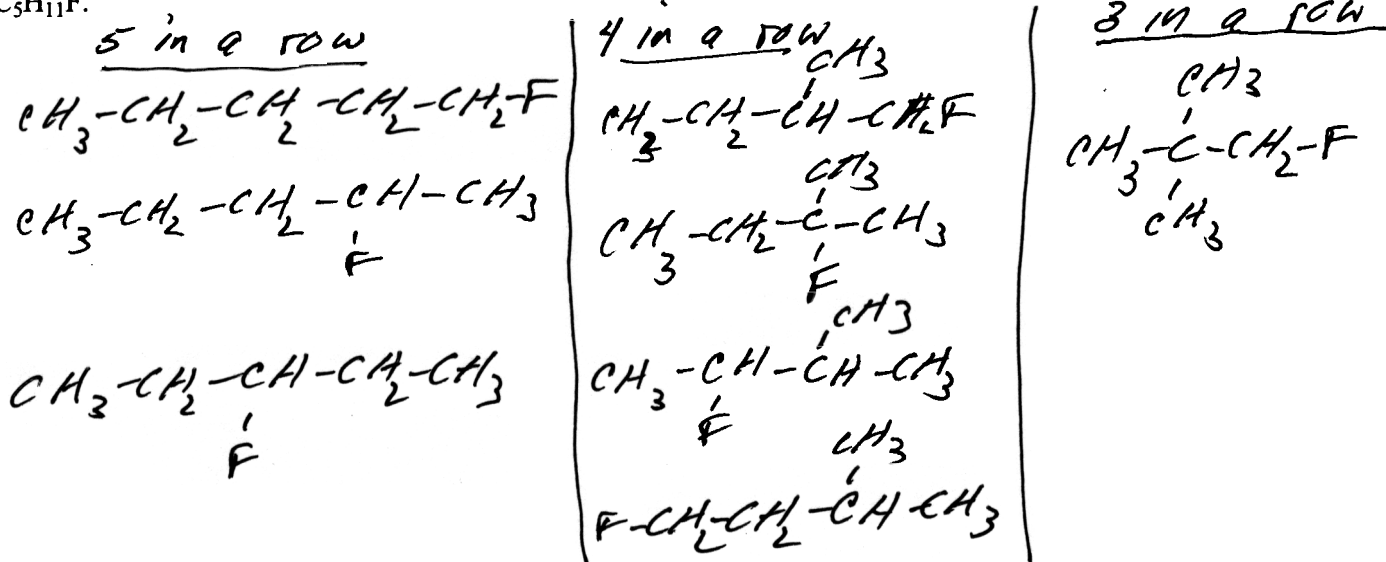 C₅H₁₁F.
5 in a row
CH₃-CH₂-CH₂-CH₂-CH₂-F
CH₃-CH₂-CH₂-CH-CH₃
F
CH₃-CH₂-CH-CH₂-CH₃
F
4 in a row
CH₃
CH₃-CH₂-CH-CH₂F
CH₃
CH₃-CH₂-C-CH₃
F
CH₃
CH₃-CH-CH-CH₃
F
CH₃
F-CH₂-CH₂-CH-CH₃
3 in a row
CH₃
CH₃-C-CH₂-F
CH₃